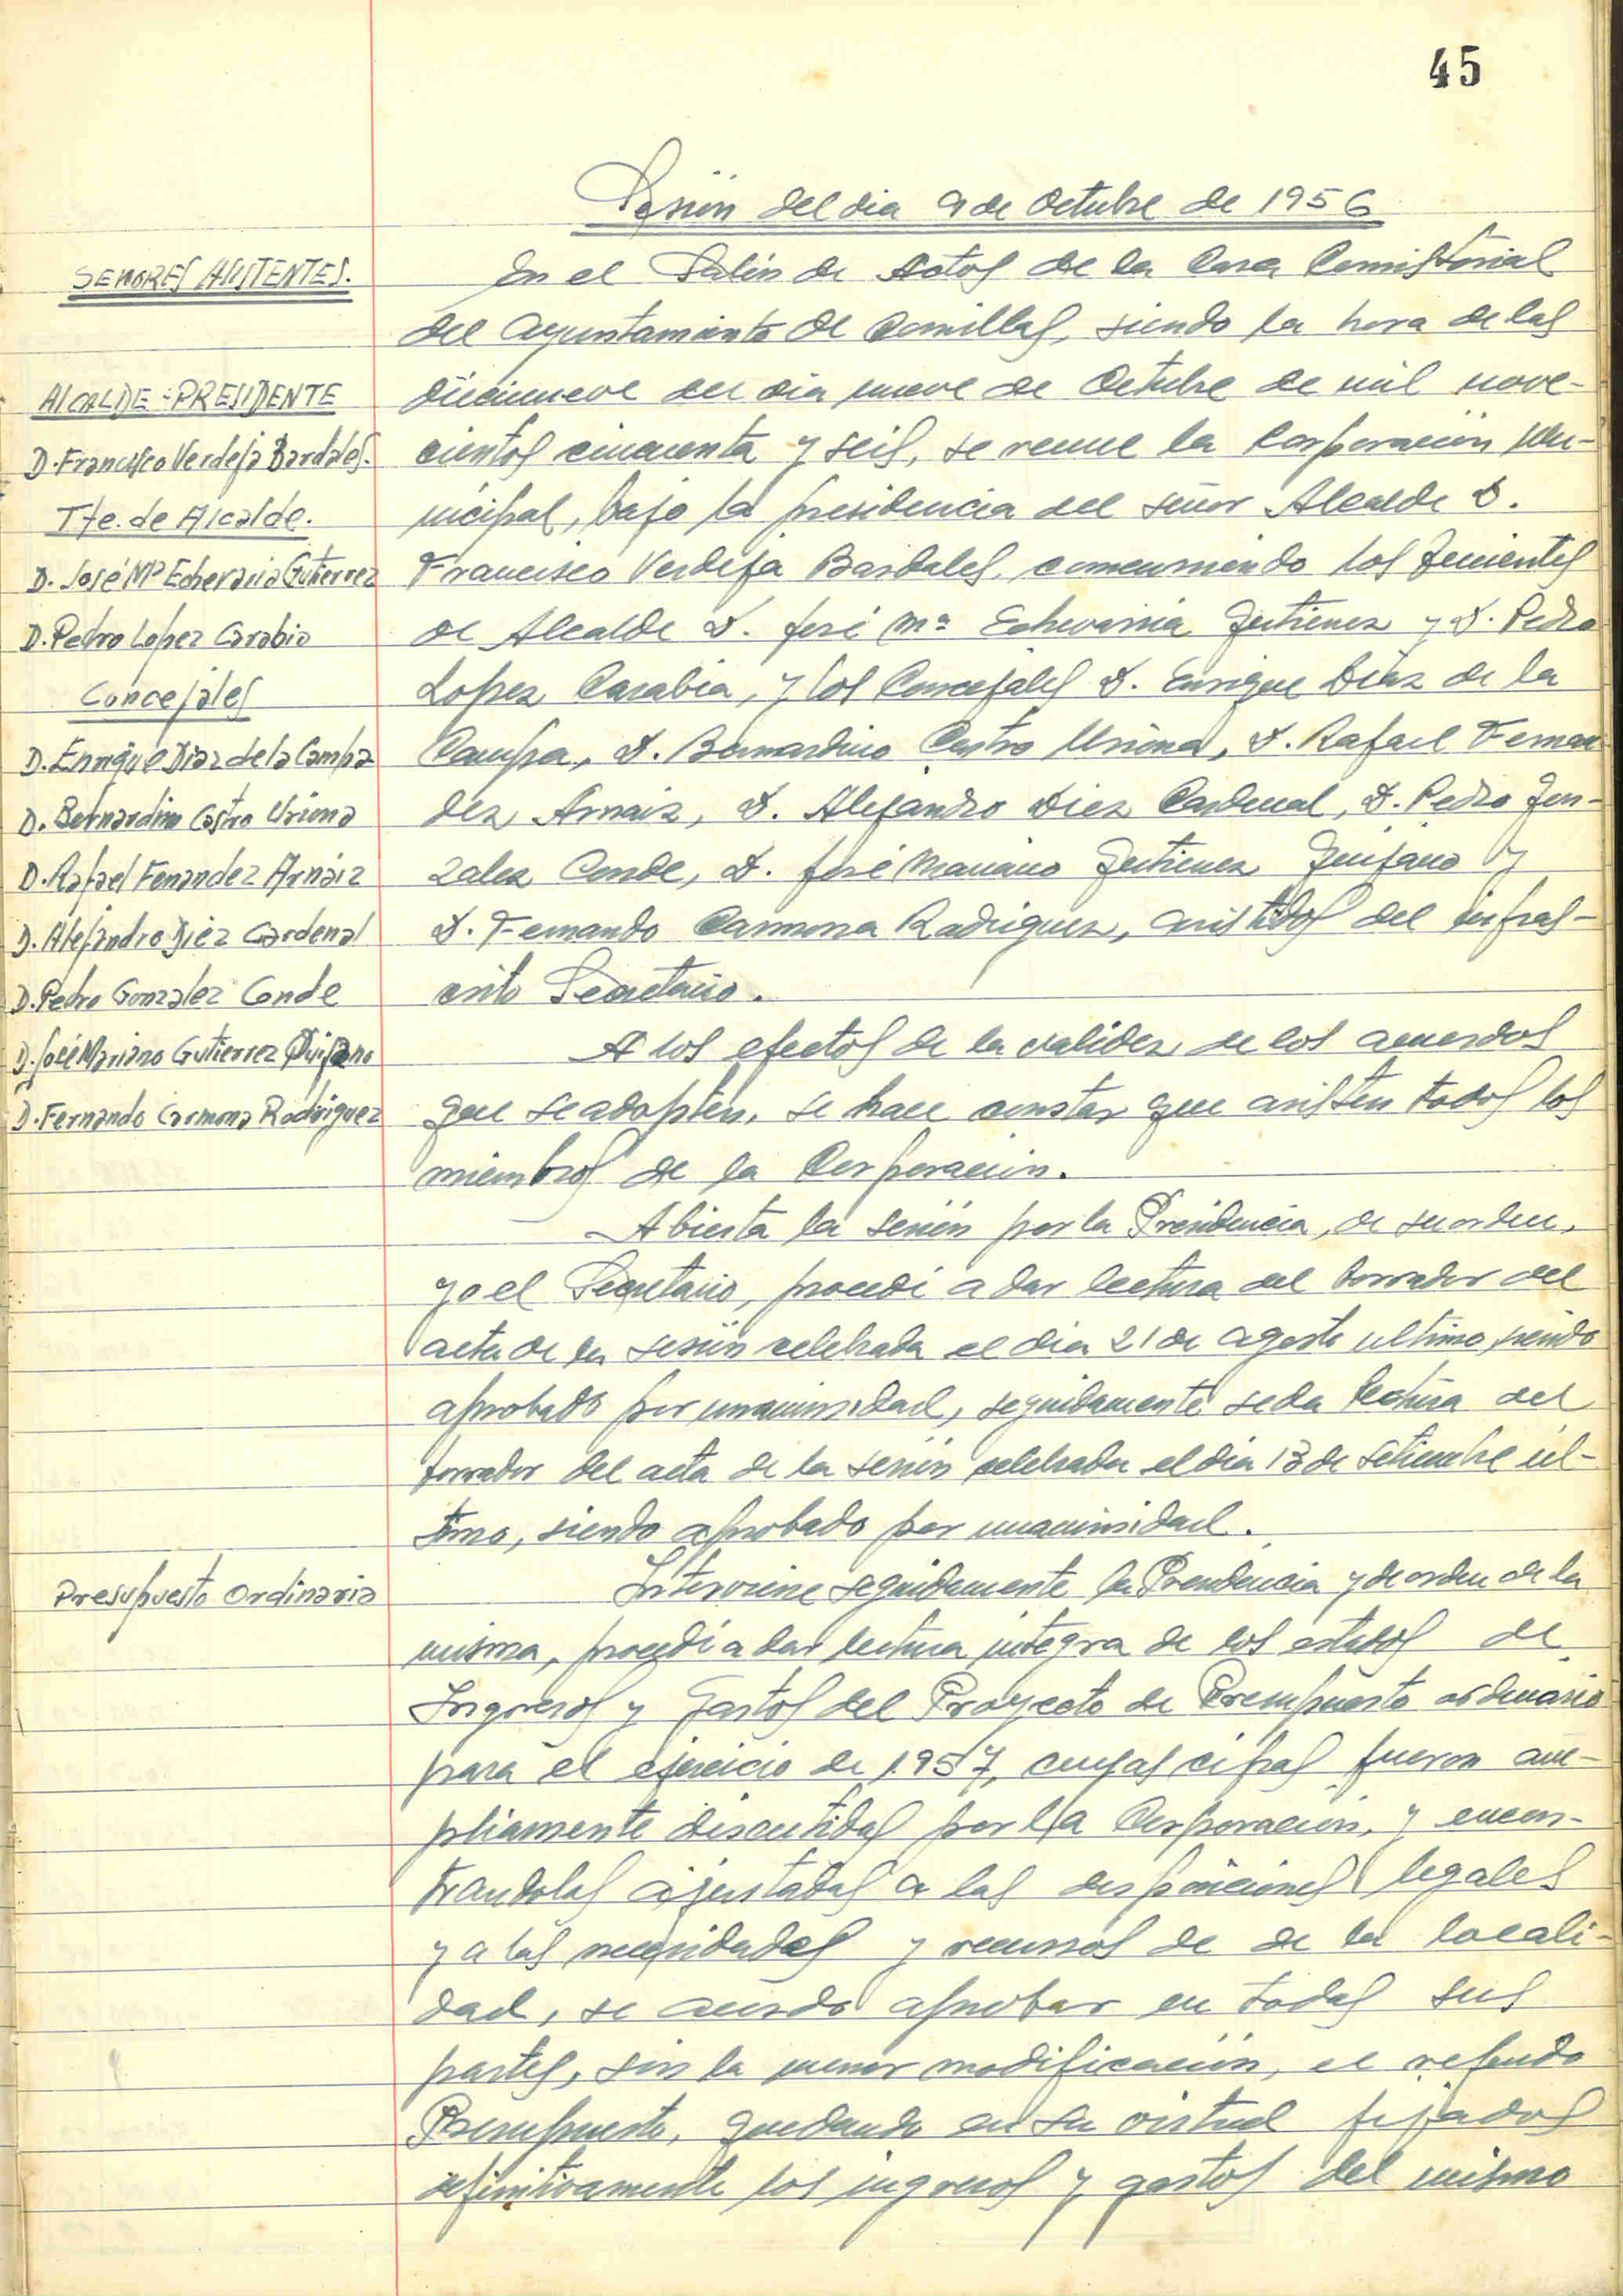 45
Sesión del dia 9 de Octubre de 1956
SEÑORES ASISTENTES.
ALCALDE-PRESIDENTE
D. Francisco Verdeja Bardales.
Tte. de Alcalde.
D. José Mª Echevarria Gutierrez
D. Pedro Lopez Carabia
Concejales
D. Enrique Diaz de la Campa
D. Bernardino Castro Uriona
D. Rafael Fernandez Arnáiz
D. Alejandro Diez Cardenal
D. Pedro Gonzalez Conde
D. José Mariano Gutierrez Quijano
D. Fernando Carmona Rodriguez
En el Salón de Actos de la Casa Consistorial
del Ayuntamiento de Comillas, siendo la hora de las
diecinueve del dia nueve de Octubre de mil nove-
cientos cincuenta y seis, se reune la Corporación Mu-
nicipal, bajo la presidencia del señor Alcalde D.
Francisco Verdeja Bardales, concurriendo los Tenientes
de Alcalde D. José Mª Echevarria Gutierrez y D. Pedro
Lopez Carabia, y los Concejales D. Enrique Diaz de la
Campa, D. Bernardino Castro Uriona, D. Rafael Fernan
dez Arnaiz, D. Alejandro Diez Cardenal, D. Pedro Gon-
zalez Conde, D. José Mariano Gutierrez Quijano y
D. Fernando Carmona Rodriguez, asistidos del infras-
crito Secretario.
A los efectos de la validez de los acuerdos
que se adopten, se hace constar que asisten todos los
miembros de la Corporación.
Abierta la sesión por la Presidencia, de su orden,
yo el Secretario, procedí a dar lectura del borrador del
acta de la sesión celebrada el dia 21 de agosto ultimo, siendo
aprobado por unanimidad, seguidamente se da lectura del
borrador del acta de la sesión celebrada el dia 13 de Setiembre úl-
timo, siendo aprobado por unanimidad.
Presupuesto Ordinario
Interviene seguidamente la Presidencia y de orden de la
misma, procedí a dar lectura integra de los estados de
Ingresos y Gastos del Proyecto de Presupuesto ordinario
para el ejercicio de 1957, cuyas cifras fueron am-
pliamente discutidas por la Corporación, y encon-
trandolas ajustadas a las disposiciones legales
y a las necesidades y recursos de de la locali-
dad, se acordó aprobar en todas sus
partes, sin la menor modificación, el referido
Presupuesto, quedando en su virtud fijados
definitivamente los ingresos y gastos del mismo